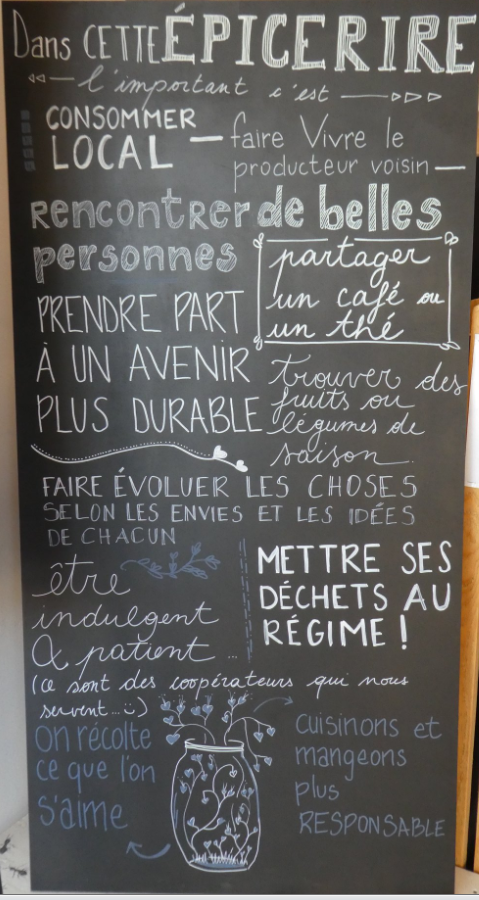 Dans CETTE ÉPICERIRE
l'important c'est
CONSOMMER
LOCAL
faire Vivre le
producteur voisin
Rencontrer de belles
personnes
partager
un café ou
un thé
PRENDRE PART
À UN AVENIR
PLUS DURABLE
trouver des
fruits ou
légumes de
saison
FAIRE ÉVOLUER LES CHOSES
SELON LES ENVIES ET LES IDÉES
DE CHACUN
être
indulgent
& patient ...
(ce sont des coopérateurs qui nous
servent...:))
METTRE SES
DÉCHETS AU
RÉGIME !
on récolte
ce que l'on
s'aime
cuisinons et
mangeons
plus
RESPONSABLE